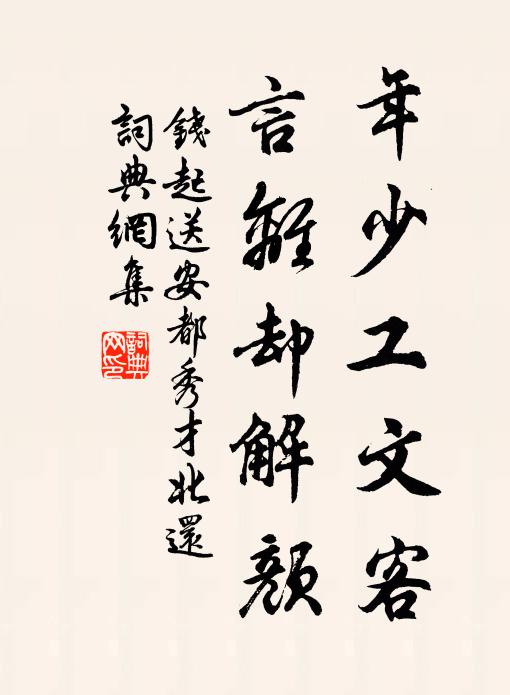 年少工文客
言離却解顏
錢起送安都秀才北還
詞典網集
詞典
网印